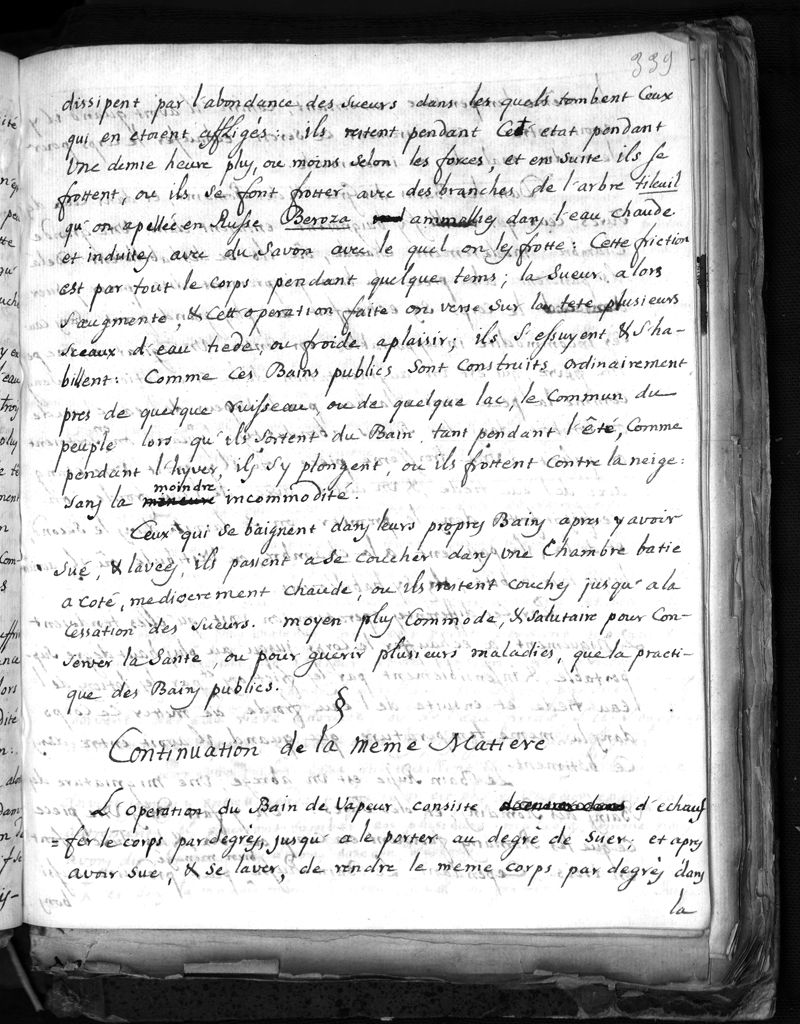 339
dissipent par l'abondance des sueurs dans les quels tombent Ceux
qui en etoent affligés: ils restent pendant Cet etat pendant
Une demie heure plus, ou moins selon les forces, et en suite ils se
frottent, ou ils se font frotter avec des branches de l'arbre tileuil
qu'on apellée en Russe Beroza ammollies dans l'eau chaude
et induites avec du Savon avec le quel on les frotte: Cette friction
est par tout le corps pendant quelque tems; la Sueur alors
s'augmente, & Cett operation faite on verse sur la tete plusieurs
sceaux d'eau tiede, ou froide a plaisir; ils s'essuyent & s'ha-
billent: Comme Ces Bains publics sont Construits ordinairement
pres de quelque ruisseau, ou de quelque lac, le Commun du
peuple lors qu'ils sortent du Bain tant pendant l'êté, Comme
pendant l'hyver, ils s'y plongent, ou ils frottent Contre la neige:
sans la moindre incommodité.
Ceux qui se baignent dans leurs propres Bains apres y avoir
sué, & lavées, ils passent a se coucher dans une Chambre batie
a coté, mediocrement chaude, ou ils restent couches jusqu'a la
Cessation des sueurs. moyen plus Commode, & salutaire pour Con-
server la Santé, ou pour guerir plusieurs maladies, que la practi-
que des Bains publics.
§
Continuation de la meme Matiere
L'operation du Bain de Vapeur consiste d'echauf
=fer le corps par degrés, jusqu'a le porter au degré de suer; et apres
avoir sué, & se laver, de rendre le meme corps par degrés dans
la